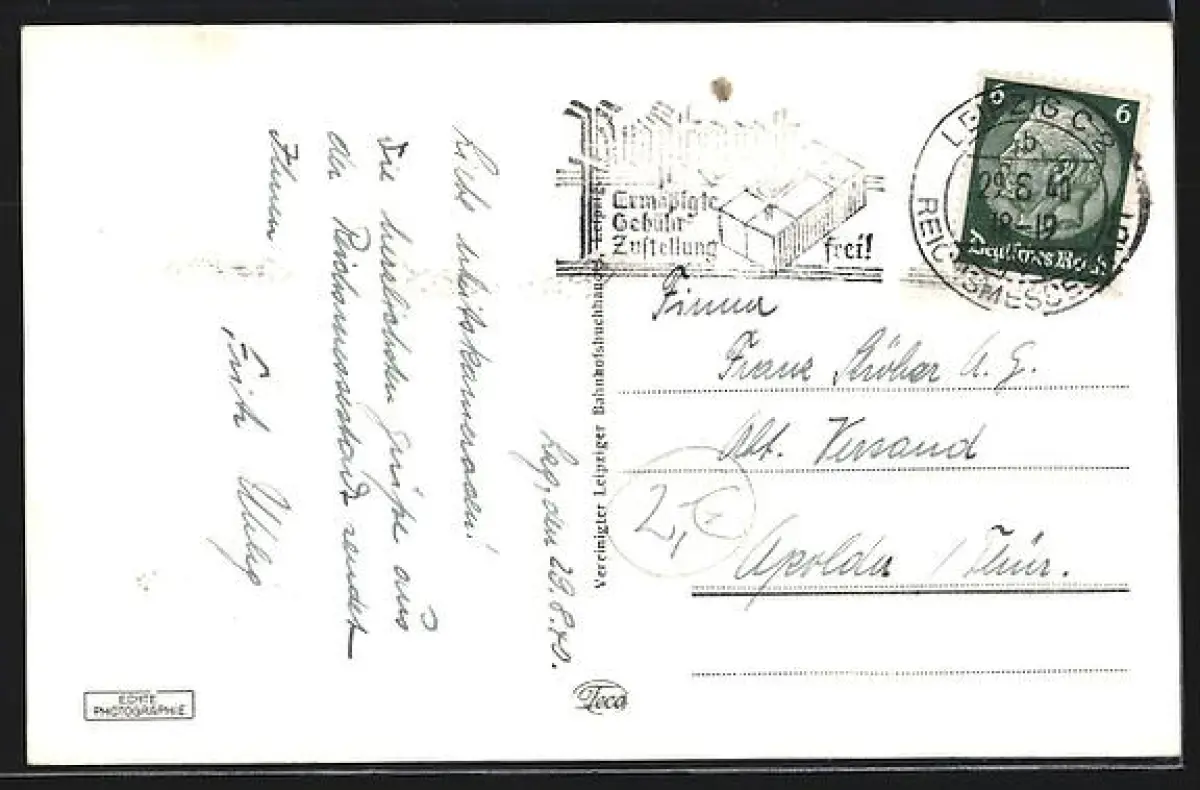 Lpzg, den 29.8.40.
Liebe Arbeitskameraden!
Die herzlichsten Grüße aus
der Reichsmessestadt sendet
Ihnen
Erich Uhlig
Ermäßigte
Gebühr
Zustellung frei!
LEIPZIG C 2
b
29.8.40
18-19
REICHSMESSESTADT
6 6
Deutsches Reich
Firma
Franz Ströher A. G.
Abt. Versand
Apolda / Thür.
2,-
Vereinigter Leipziger Bahnhofsbuchhandel, Leipzig
Teco
ECHTE
PHOTOGRAPHIE